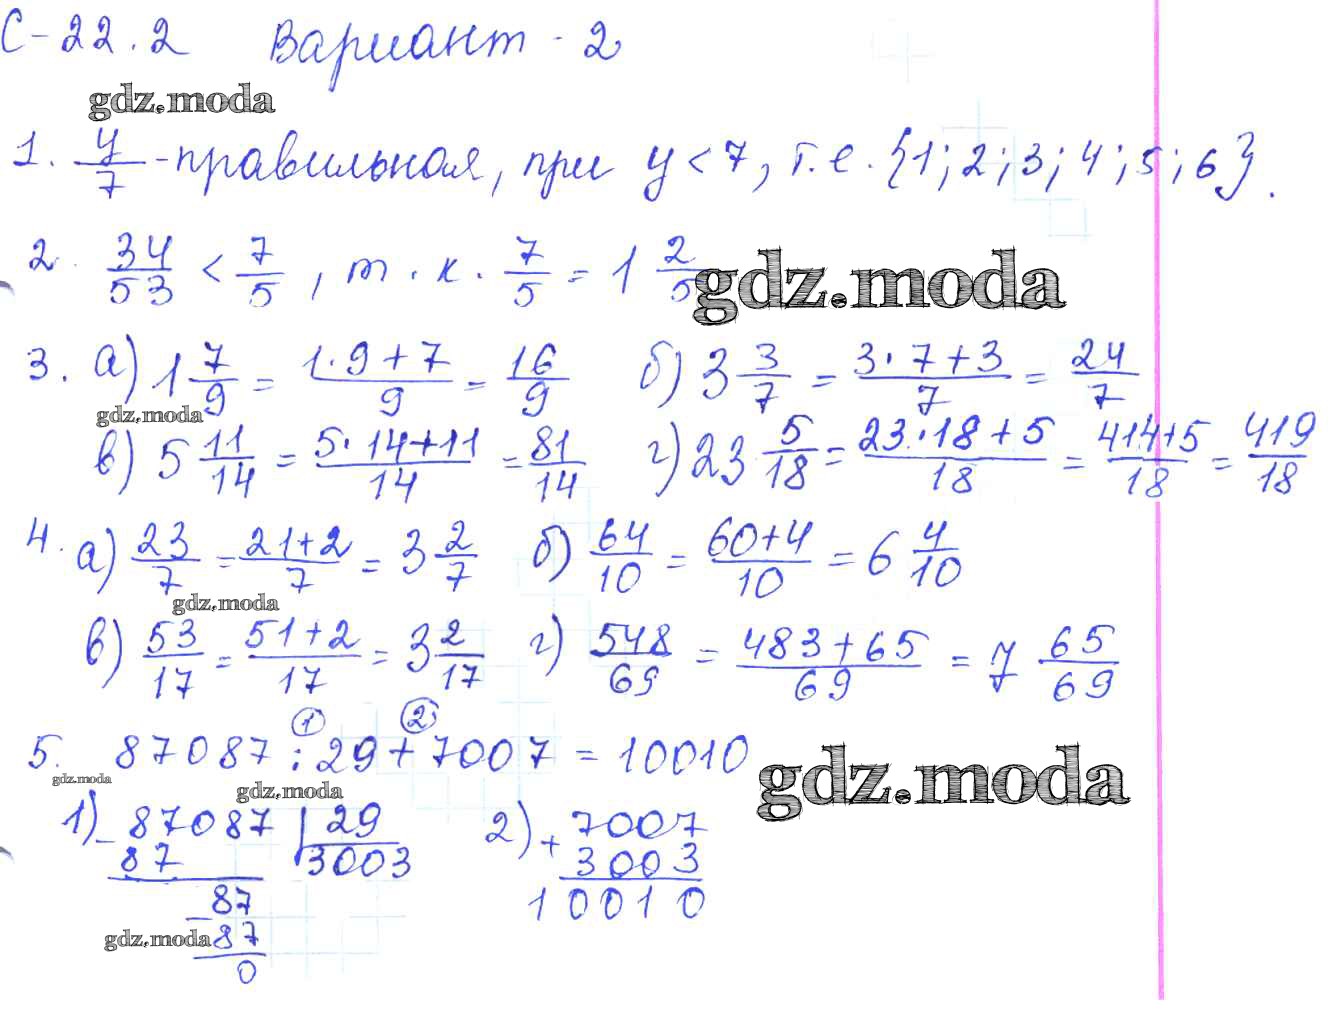 С-22.2 Вариант - 2
gdz.moda
1. y/7 - правильная, при y < 7, т.е. {1; 2; 3; 4; 5; 6}.
2. 34/53 < 7/5, т.к. 7/5 = 1 2/5
gdz.moda
3. а) 1 7/9 = (1·9+7)/9 = 16/9 б) 3 3/7 = (3·7+3)/7 = 24/7
gdz.moda
в) 5 11/14 = (5·14+11)/14 = 81/14 г) 23 5/18 = (23·18+5)/18 = (414+5)/18 = 419/18
4. а) 23/7 = (21+2)/7 = 3 2/7 б) 64/10 = (60+4)/10 = 6 4/10
gdz.moda
в) 53/17 = (51+2)/17 = 3 2/17 г) 548/69 = (483+65)/69 = 7 65/69
① ②
5. 87087 : 29 + 7007 = 10010
gdz.moda gdz.moda gdz.moda
1) - 87087 | 29 2) + 7007
87 3003 3003
- 87 10010
gdz.moda 87
0